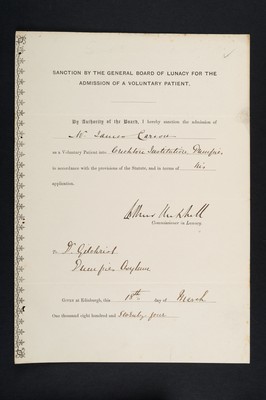 SANCTION BY THE GENERAL BOARD OF LUNACY FOR THE
ADMISSION OF A VOLUNTARY PATIENT.
By Authority of the Board, I hereby sanction the admission of
Mr James Carson
as a Voluntary Patient into Crichton Institution Dumfries
in accordance with the provisions of the Statute, and in terms of his
application.
Arthur Mitchell
Commissioner in Lunacy.
To Dr Gilchrist
Dumfries Asylum
GIVEN at Edinburgh, this 18th day of March
One thousand eight hundred and Seventy four